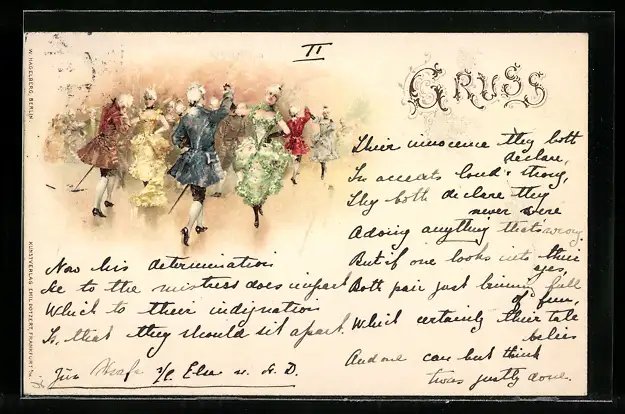 II
GRUSS
W. HAGELBERG, BERLIN.
KUNSTVERLAG EMIL DOTZERT, FRANKFURT
Now his determination
he to the mistress does impart
Which to their indignation
Is, that they should sit apart.
Their innocence they both
declare,
In accents loud & strong,
They both declare they
never were
A doing anything that's wrong.
But if one looks into their
eyes,
Both pair just brimming full
of fun,
Which certainly their tale
belies
And one can but think
twas justly done.
Zur Strafe f/ Else u. D.